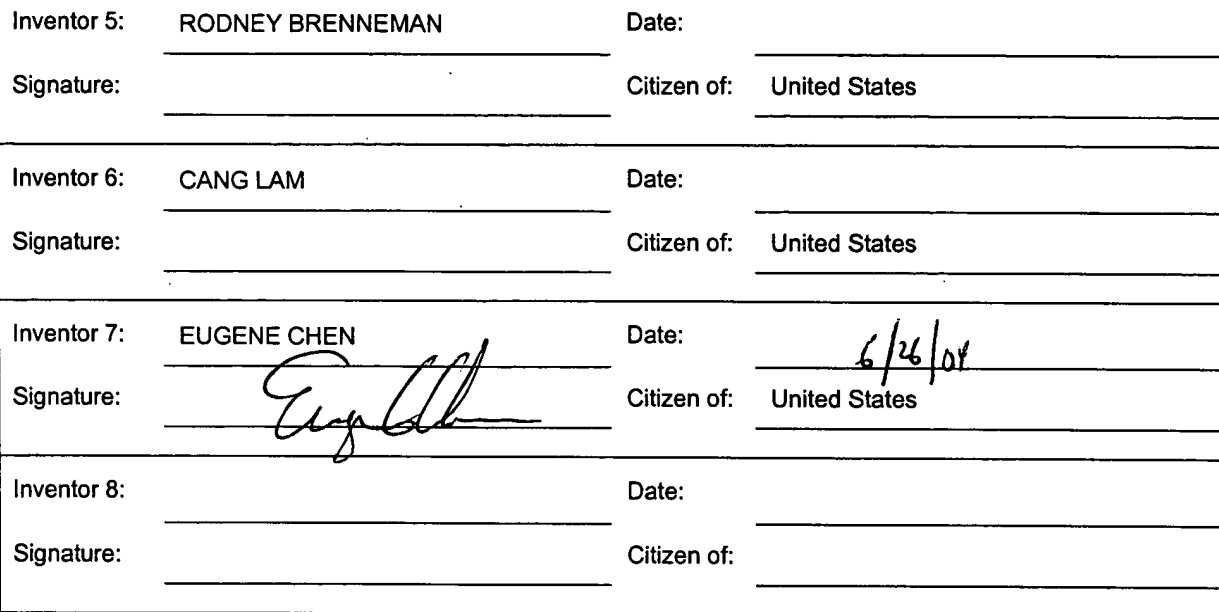 Inventor 5: RODNEY BRENNEMAN Date:
Signature: Citizen of: United States
Inventor 6: CANG LAM Date:
Signature: Citizen of: United States
Inventor 7: EUGENE CHEN Date: 6/26/04
Signature: Citizen of: United States
Inventor 8: Date:
Signature: Citizen of: